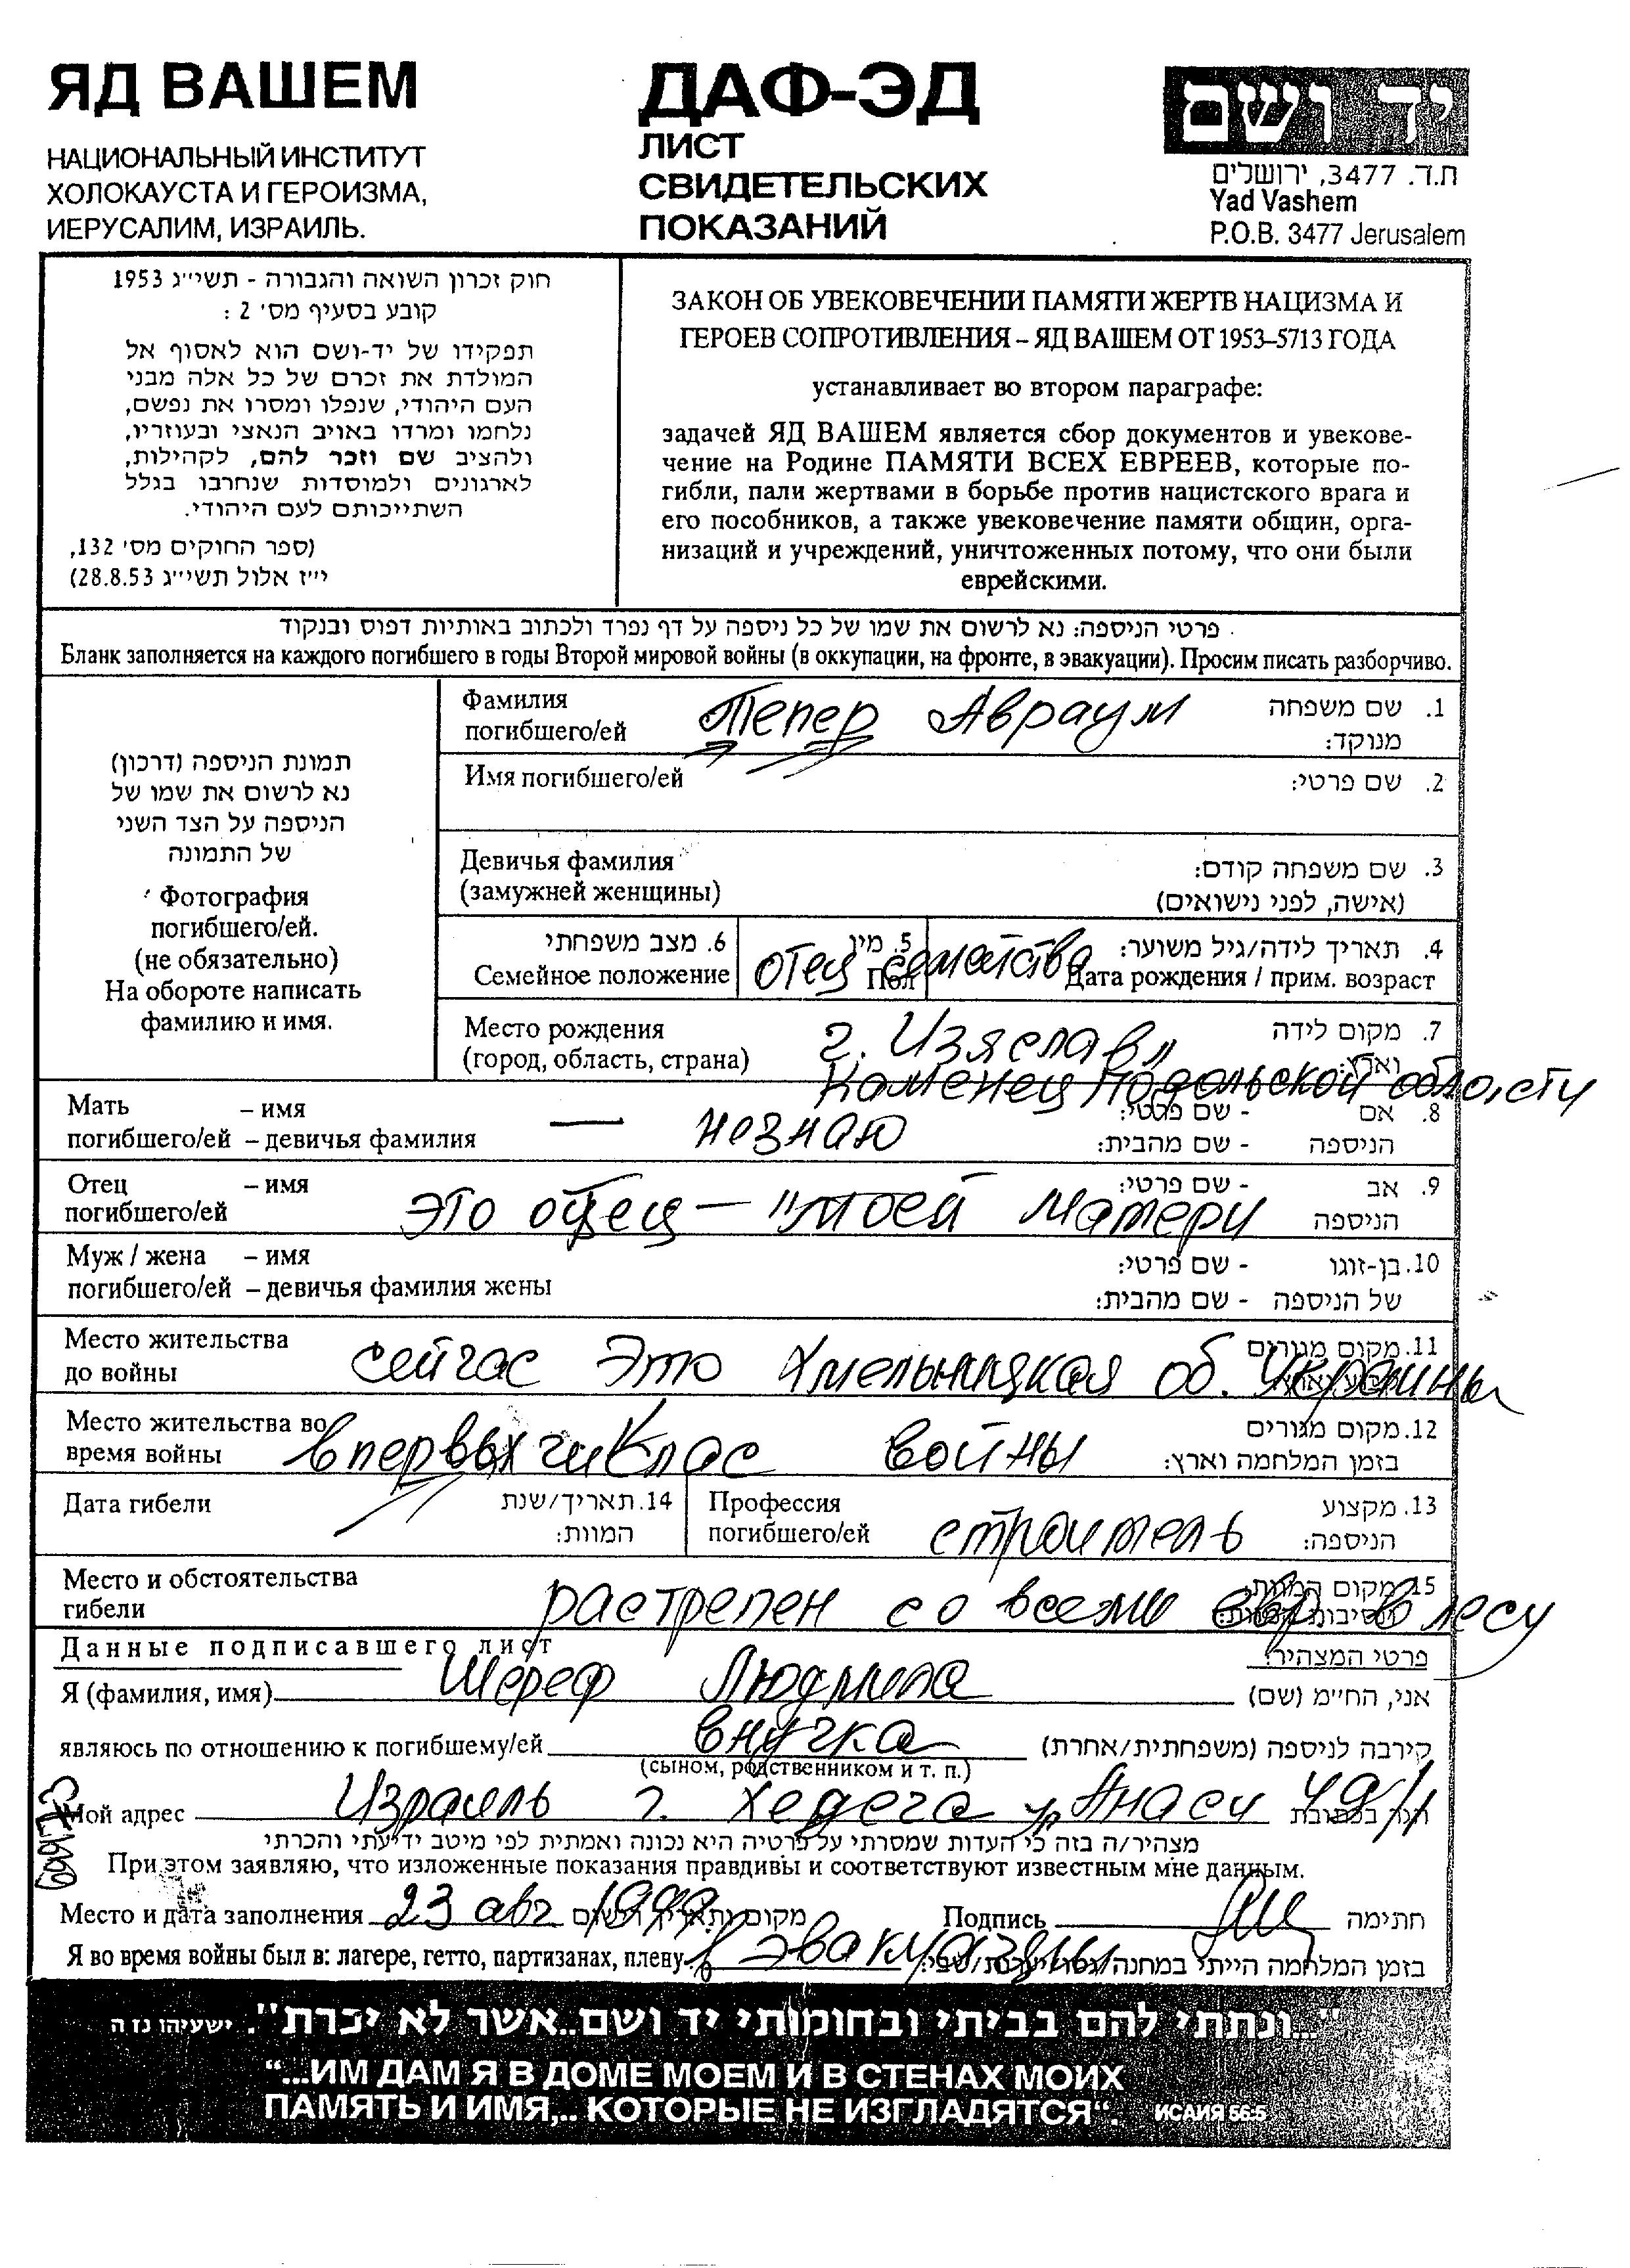 ЯД ВАШЕМ
НАЦИОНАЛЬНЫЙ ИНСТИТУТ
ХОЛОКАУСТА И ГЕРОИЗМА,
ИЕРУСАЛИМ, ИЗРАИЛЬ.
ДАФ-ЭД
ЛИСТ
СВИДЕТЕЛЬСКИХ
ПОКАЗАНИЙ
יד ושם
ת.ד. 3477, ירושלים
Yad Vashem
P.O.B. 3477 Jerusalem
חוק זכרון השואה והגבורה - תשי״ג 1953
קובע בסעיף מס׳ 2 :
תפקידו של יד-ושם הוא לאסוף אל
המולדת את זכרם של כל אלה מבני
העם היהודי, שנפלו ומסרו את נפשם,
נלחמו ומרדו באויב הנאצי ובעוזריו,
ולהציב שם וזכר להם, לקהילות,
לארגונים ולמוסדות שנחרבו בגלל
השתייכותם לעם היהודי.
(ספר החוקים מס׳ 132,
י״ז אלול תשי״ג 28.8.53)
ЗАКОН ОБ УВЕКОВЕЧЕНИИ ПАМЯТИ ЖЕРТВ НАЦИЗМА И
ГЕРОЕВ СОПРОТИВЛЕНИЯ – ЯД ВАШЕМ ОТ 1953–5713 ГОДА
устанавливает во втором параграфе:
задачей ЯД ВАШЕМ является сбор документов и увекове-
чение на Родине ПАМЯТИ ВСЕХ ЕВРЕЕВ, которые по-
гибли, пали жертвами в борьбе против нацистского врага и
его пособников, а также увековечение памяти общин, орга-
низаций и учреждений, уничтоженных потому, что они были
еврейскими.
פרטי הניספה: נא לרשום את שמו של כל ניספה על דף נפרד ולכתוב באותיות דפוס ובנקוד
Бланк заполняется на каждого погибшего в годы Второй мировой войны (в оккупации, на фронте, в эвакуации). Просим писать разборчиво.
תמונת הניספה (דרכון)
נא לרשום את שמו של
הניספה על הצד השני
של התמונה
Фотография
погибшего/ей.
(не обязательно)
На обороте написать
фамилию и имя.
Фамилия
погибшего/ей
Тепер Авраум
1. שם משפחה
מנוקד:
Имя погибшего/ей
2. שם פרטי:
Девичья фамилия
(замужней женщины)
3. שם משפחה קודם:
(אישה, לפני נישואים)
6. מצב משפחתי
Семейное положение
5. מין
Пол
отец семейства
4. תאריך לידה/גיל משוער:
Дата рождения / прим. возраст
Место рождения
(город, область, страна)
г. Изяслав
Каменец Подольской области
7. מקום לידה
וארץ:
Мать – имя
погибшего/ей – девичья фамилия
— незнаю
8. אם - שם פרטי:
הניספה - שם מהבית:
Отец – имя
погибшего/ей
это отец — "моей матери
9. אב - שם פרטי:
הניספה
Муж / жена – имя
погибшего/ей – девичья фамилия жены
10. בן-זוגו - שם פרטי:
של הניספה - שם מהבית:
Место жительства
до войны
сейчас это Хмельницкая об. Украины
11. מקום מגורים
Место жительства во
время войны
войны
12. מקום מגורים
בזמן המלחמה וארץ:
Дата гибели
14. תאריך/שנת
המוות:
Профессия
погибшего/ей
строитель
13. מקצוע
הניספה:
Место и обстоятельства
гибели
растрелен со всеми евр. в лесу
15. מקום המוות
Данные подписавшего лист
פרטי המצהיר:
Я (фамилия, имя) Шереф Людмила
אני, החי״מ (שם)
являюсь по отношению к погибшему/ей внучка
(сыном, родственником и т. п.)
קירבה לניספה (משפחתית/אחרת)
Мой адрес Израиль г. Хедера ур Анаси 49/1
מצהיר/ה בזה כי העדות שמסרתי על פרטיה היא נכונה ואמתית לפי מיטב ידיעתי והכרתי
При этом заявляю, что изложенные показания правдивы и соответствуют известным мне данным.
Место и дата заполнения 23 авг 1999
מקום ותאריך רישום
Подпись
חתימה
Я во время войны был в: лагере, гетто, партизанах, плену в эвакуации
בזמן המלחמה הייתי במחנה
"...ונתתי להם בביתי ובחומותי יד ושם..אשר לא יכרת". ישעיהו נז ה
“...ИМ ДАМ Я В ДОМЕ МОЕМ И В СТЕНАХ МОИХ
ПАМЯТЬ И ИМЯ,.. КОТОРЫЕ НЕ ИЗГЛАДЯТСЯ“. ИСАИЯ 56:5